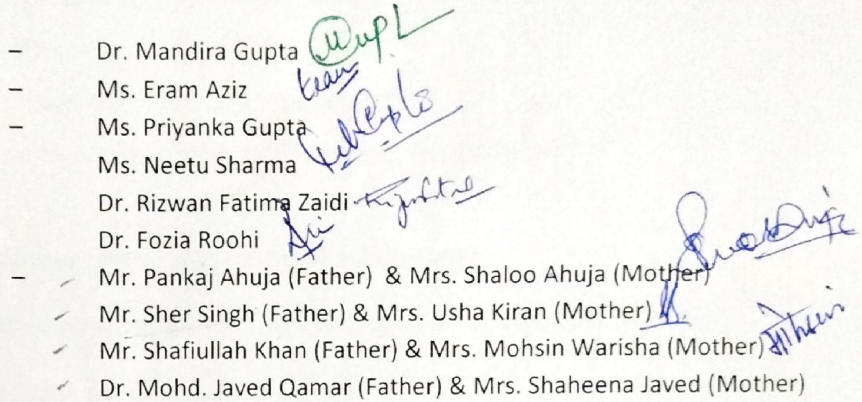 - Dr. Mandira Gupta
- Ms. Eram Aziz
- Ms. Priyanka Gupta
Ms. Neetu Sharma
Dr. Rizwan Fatima Zaidi
Dr. Fozia Roohi
- Mr. Pankaj Ahuja (Father) & Mrs. Shaloo Ahuja (Mother)
Mr. Sher Singh (Father) & Mrs. Usha Kiran (Mother)
Mr. Shafiullah Khan (Father) & Mrs. Mohsin Warisha (Mother)
Dr. Mohd. Javed Qamar (Father) & Mrs. Shaheena Javed (Mother)